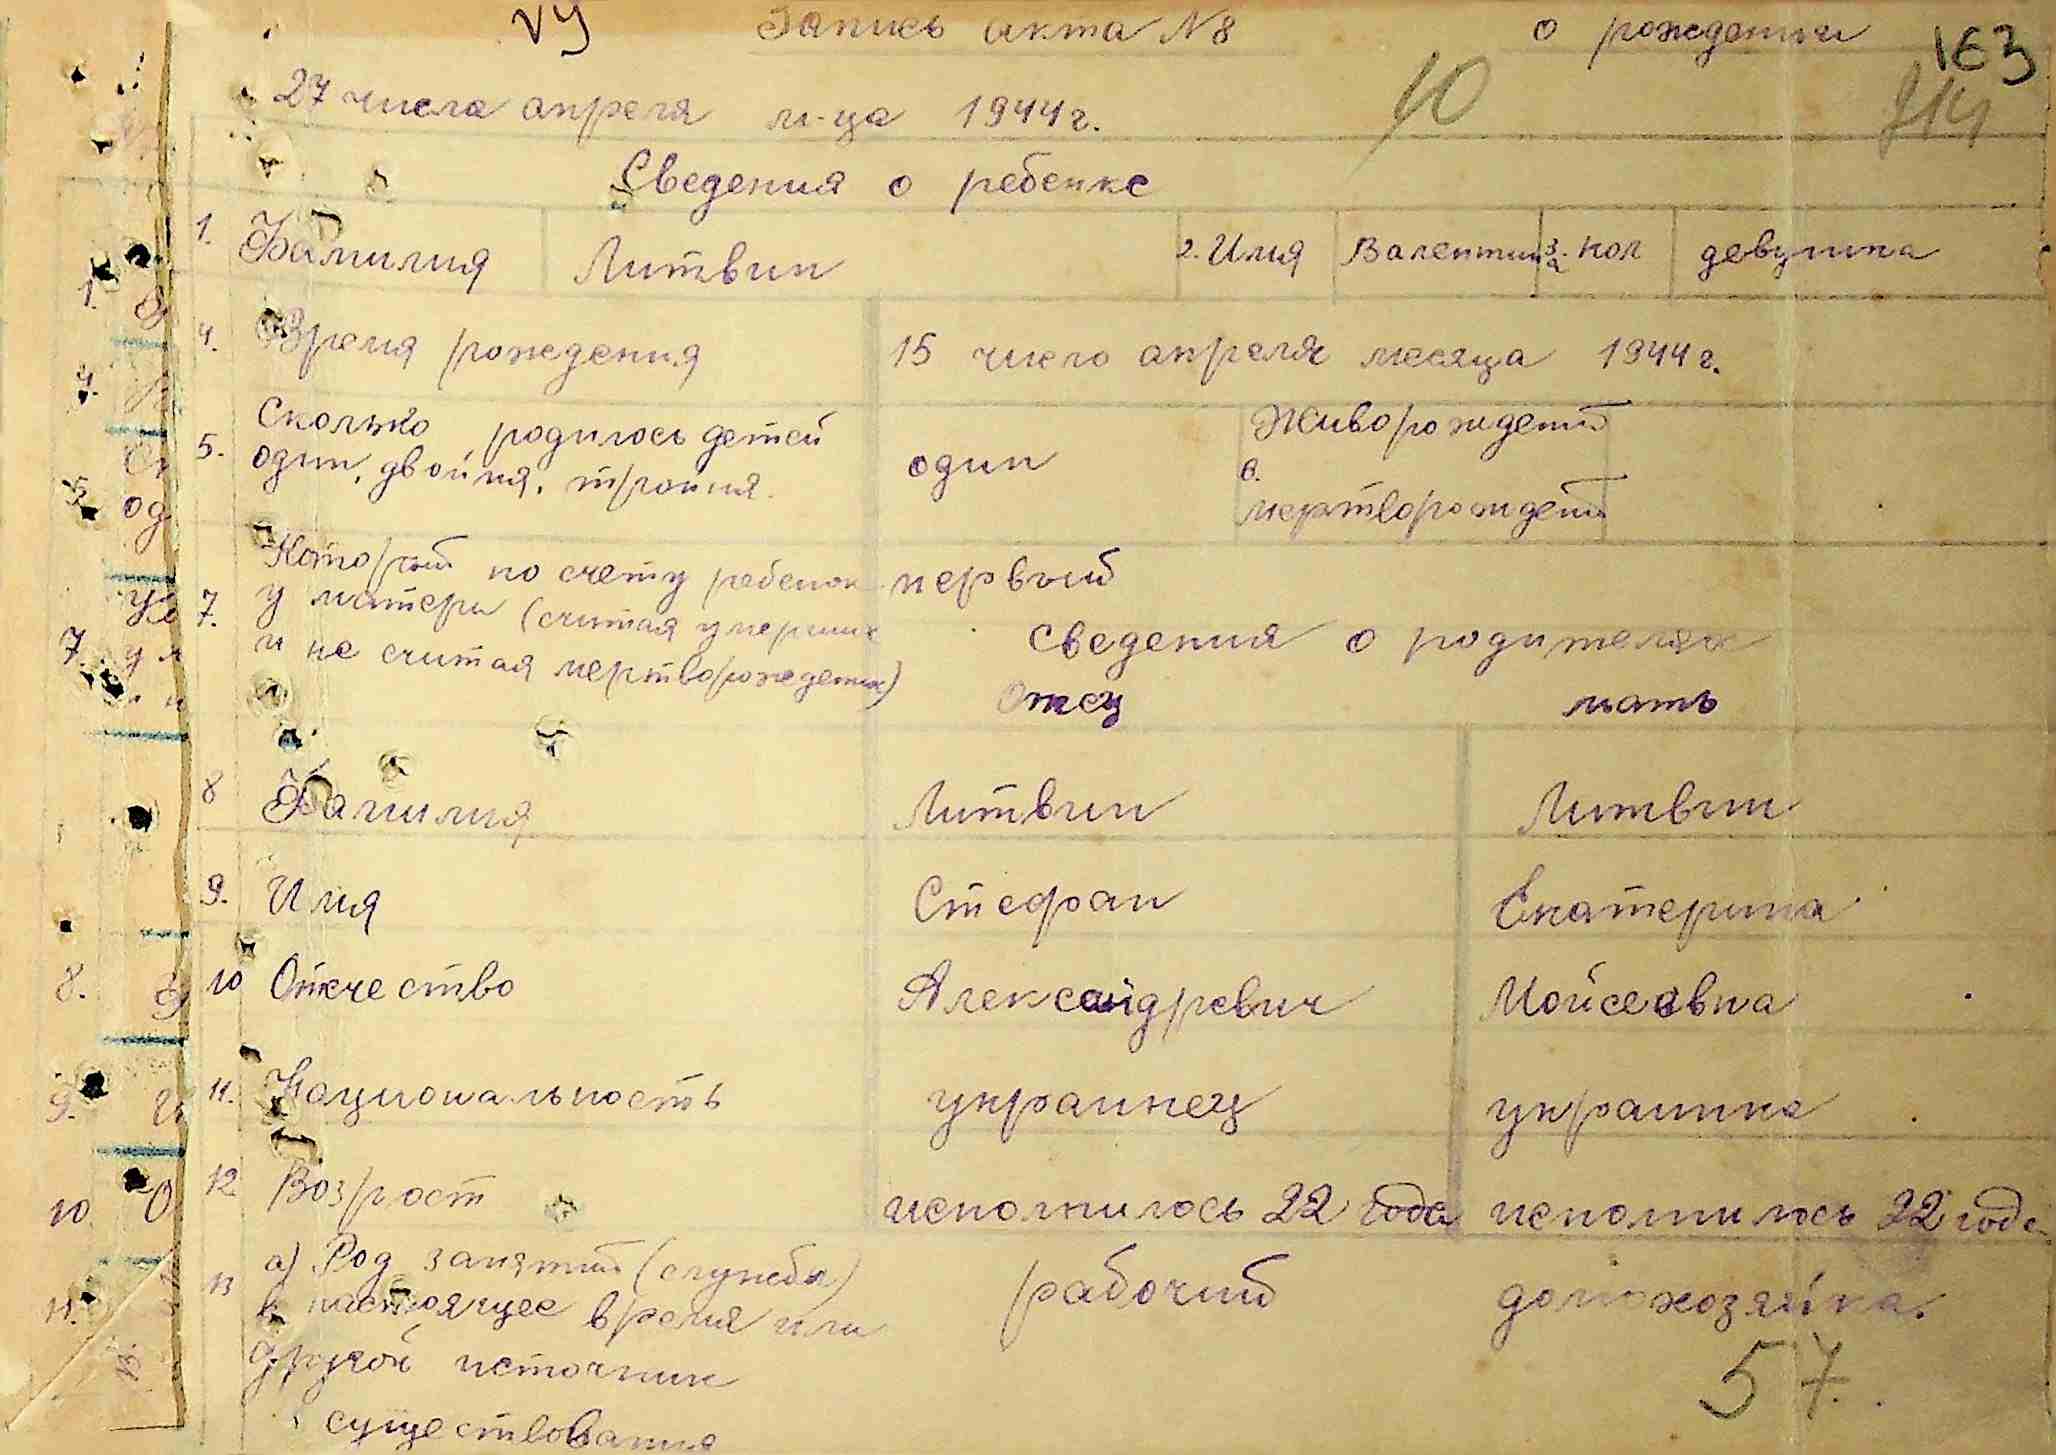 Запись акта N 8 о рождении 163
27 числа апреля м-ца 1944 г. 10
Сведения о ребенке
1. Фамилия Литвин 2. Имя Валентина 3. пол девушка
4. Время рождения 15 число апреля месяца 1944 г.
5. Сколько родилось детей
один, двойня, тройня. один
Живорожденый
6.
мертворожденый
7. Который по счету ребенок
у матери (считая умерших
и не считая мертворожденых)
первый
Сведения о родителях
Отец мать
8 Фамилия Литвин Литвин
9. Имя Стефан Екатерина
10 Отчество Александревич Мойсеовна
11. Национальность украинец украинка
12 Возрост исполнилось 22 года исполнилось 22 года
13 а) Род занятий (службы)
в настоящее время или
другой источник
существования
рабочий домохозяйка.
57.
1.
4.
5 од
7. у
8.
9.
10. О
11.